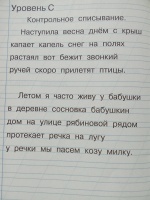 Уровень С
Контрольное списывание.
Наступила весна днём с крыш
капает капель снег на полях
растаял вот бежит звонкий
ручей скоро прилетят птицы.
Летом я часто живу у бабушки
в деревне сосновка бабушкин
дом на улице рябиновой рядом
протекает речка на лугу
у речки мы пасем козу милку.